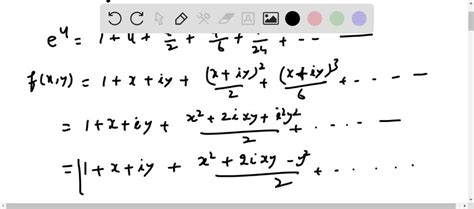 e^u = 1 + u + /2 + /6 + /24 + -- —
f(x,y) = 1 + x + iy + (x+iy)^2/2 + (x+iy)^3/6 + - - - -
= 1 + x + iy + x^2 + 2ixy + i^2y^2/2 + - - - - —
= |1 + x + iy + x^2 + 2ixy - y^2/2 + - - - - -